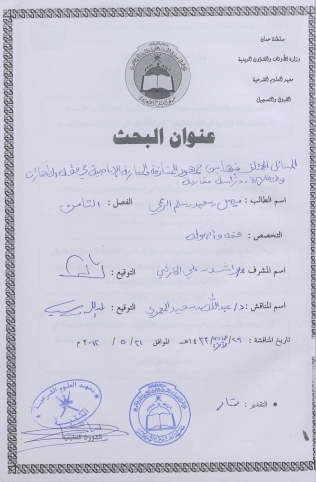 سلطنة عمان
وزارة الأوقاف والشؤون الدينية
معهد العلوم الشرعية
القبول والتسجيل
عنوان البحث
المسائل المختلف فيها بين جمهور المشارقة والمغاربة الإباضية في فقه الطهارات
والصلاة .. دراسة مقارنة
اسم الطالب: فيصل سعيد سالم الفصل: الثامن
التخصص: فقه وأصوله
اسم المشرف: راشد علي الحارثي التوقيع:
اسم المناقش: د/ عبدالله سعيد المعمري التوقيع:
تاريخ المناقشة: ٢٩ / ١٤٣٣هـ الموافق ٢١ / ٥ / ٢٠١٢م
التقدير: ممتاز
معهد العلوم الشرعية
الشؤون التعليمية
١